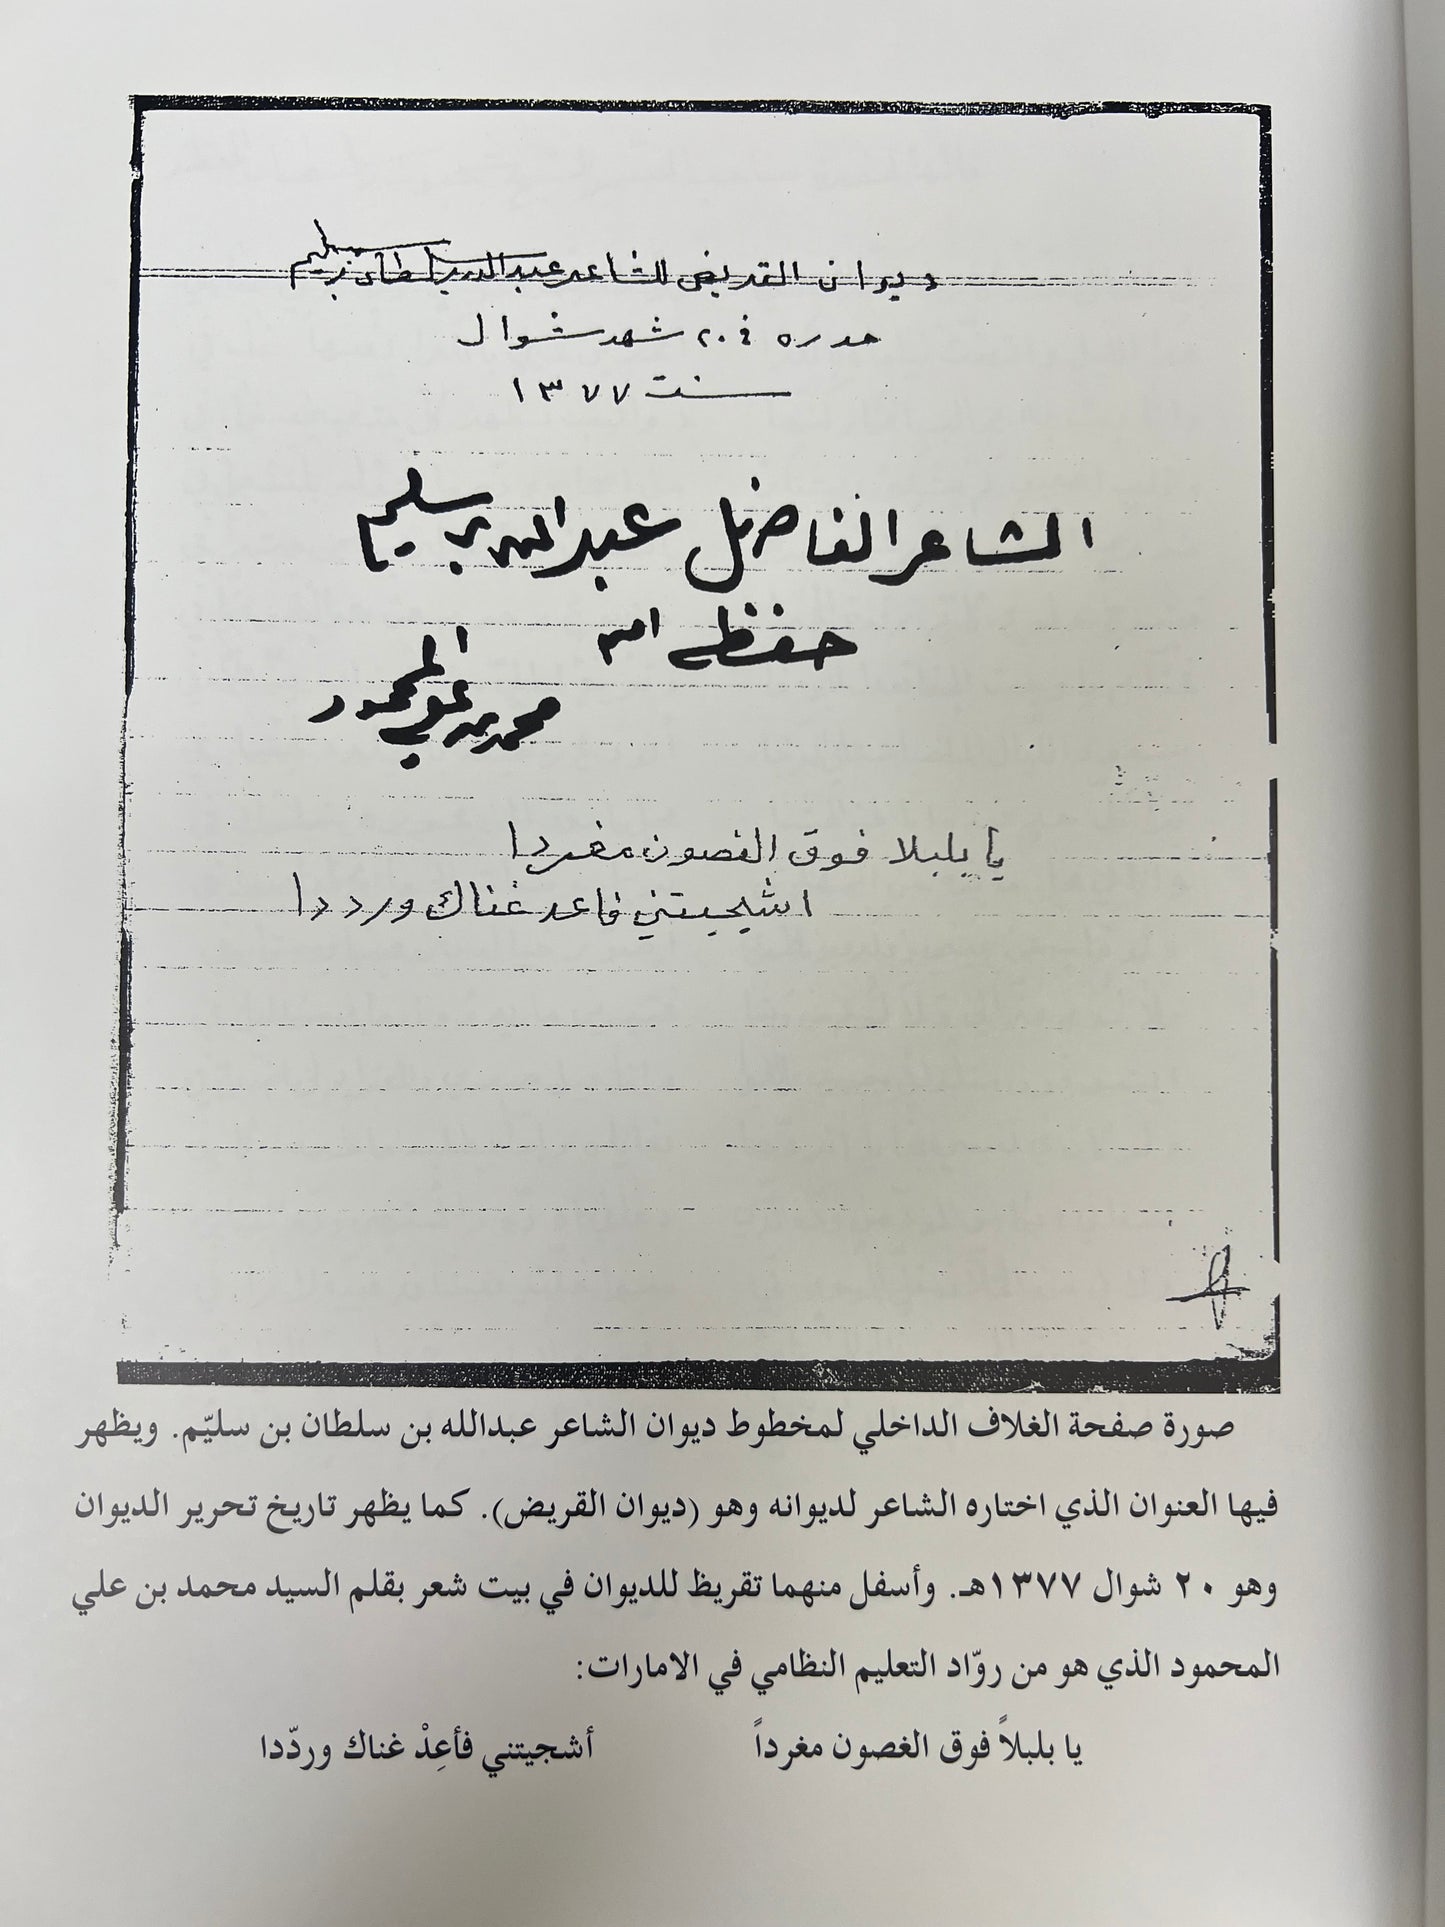 ديوان القريض للشاعر عبدالله بن سلطان بن سليم
حرره في ٢٠ شهر شوال
سنت ١٣٧٧
الشاعر الفاضل عبدالله بن سليم
حفظه الله
محمد بن علي المحمود
يا بلبلا فوق الغصون مغردا
اشجيتني فاعد غناك ورددا
صورة صفحة الغلاف الداخلي لمخطوط ديوان الشاعر عبدالله بن سلطان بن سليّم. ويظهر
فيها العنوان الذي اختاره الشاعر لديوانه وهو (ديوان القريض). كما يظهر تاريخ تحرير الديوان
وهو ٢٠ شوال ١٣٧٧هـ. وأسفل منهما تقريظ للديوان في بيت شعر بقلم السيد محمد بن علي
المحمود الذي هو من روّاد التعليم النظامي في الامارات:
يا بلبلاً فوق الغصون مغرداً أشجيتني فأعِدْ غناك وردّدا